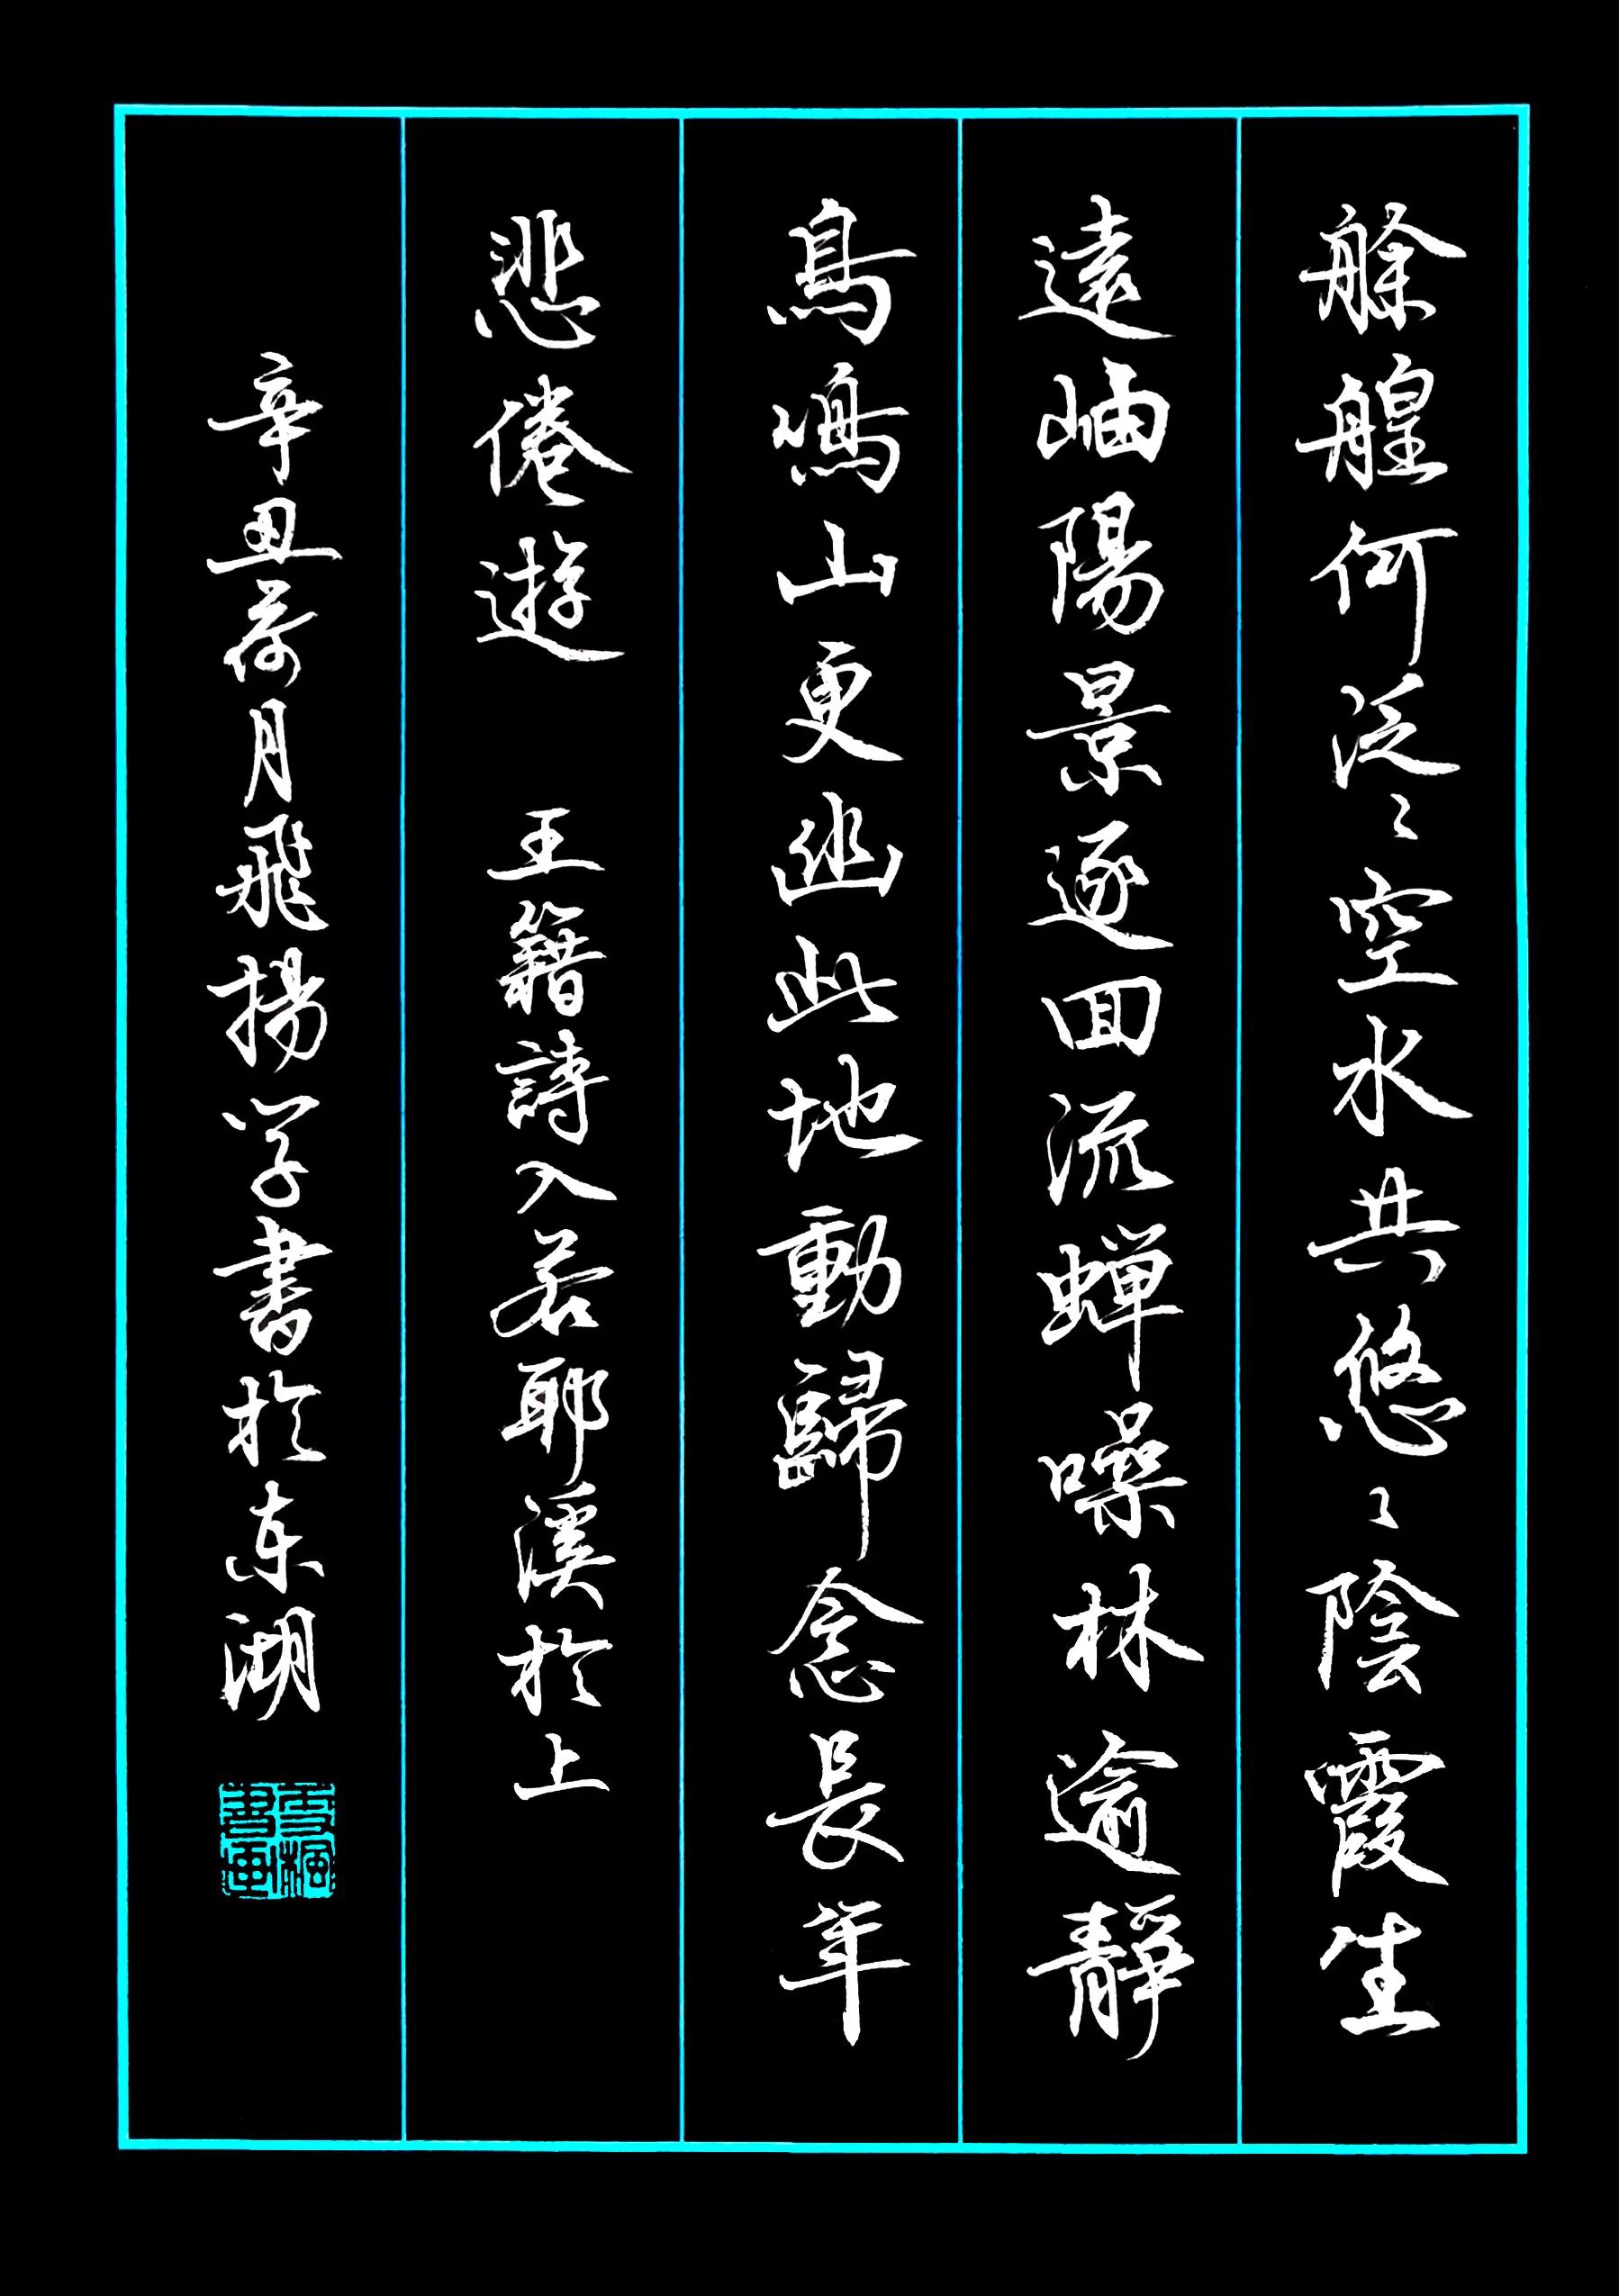 艅艎何泛〻空水共悠〻陰霞生
遠岫陽景逐回流蝉噪林逾靜
鳥鳴山更幽此地動歸念長年
悲倦遊 王籍詩入若耶溪於上
辛丑荷月飛揚学書於东湖